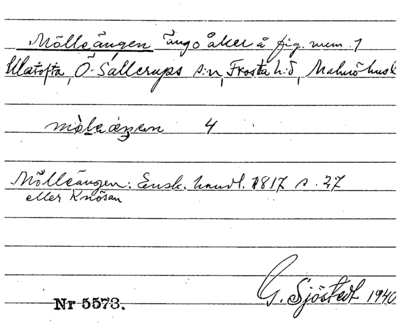 Mölleängen äng o åker å fig. num. 1
Ellatofta, Ö. Sallerups s:n, Frosta h:d, Malmöhus l
möleäŋen 4
Mölleängen: Ensk. handl. 1817 s. 27
eller Knösen
G. Sjöstedt 1940
Nr 5573.